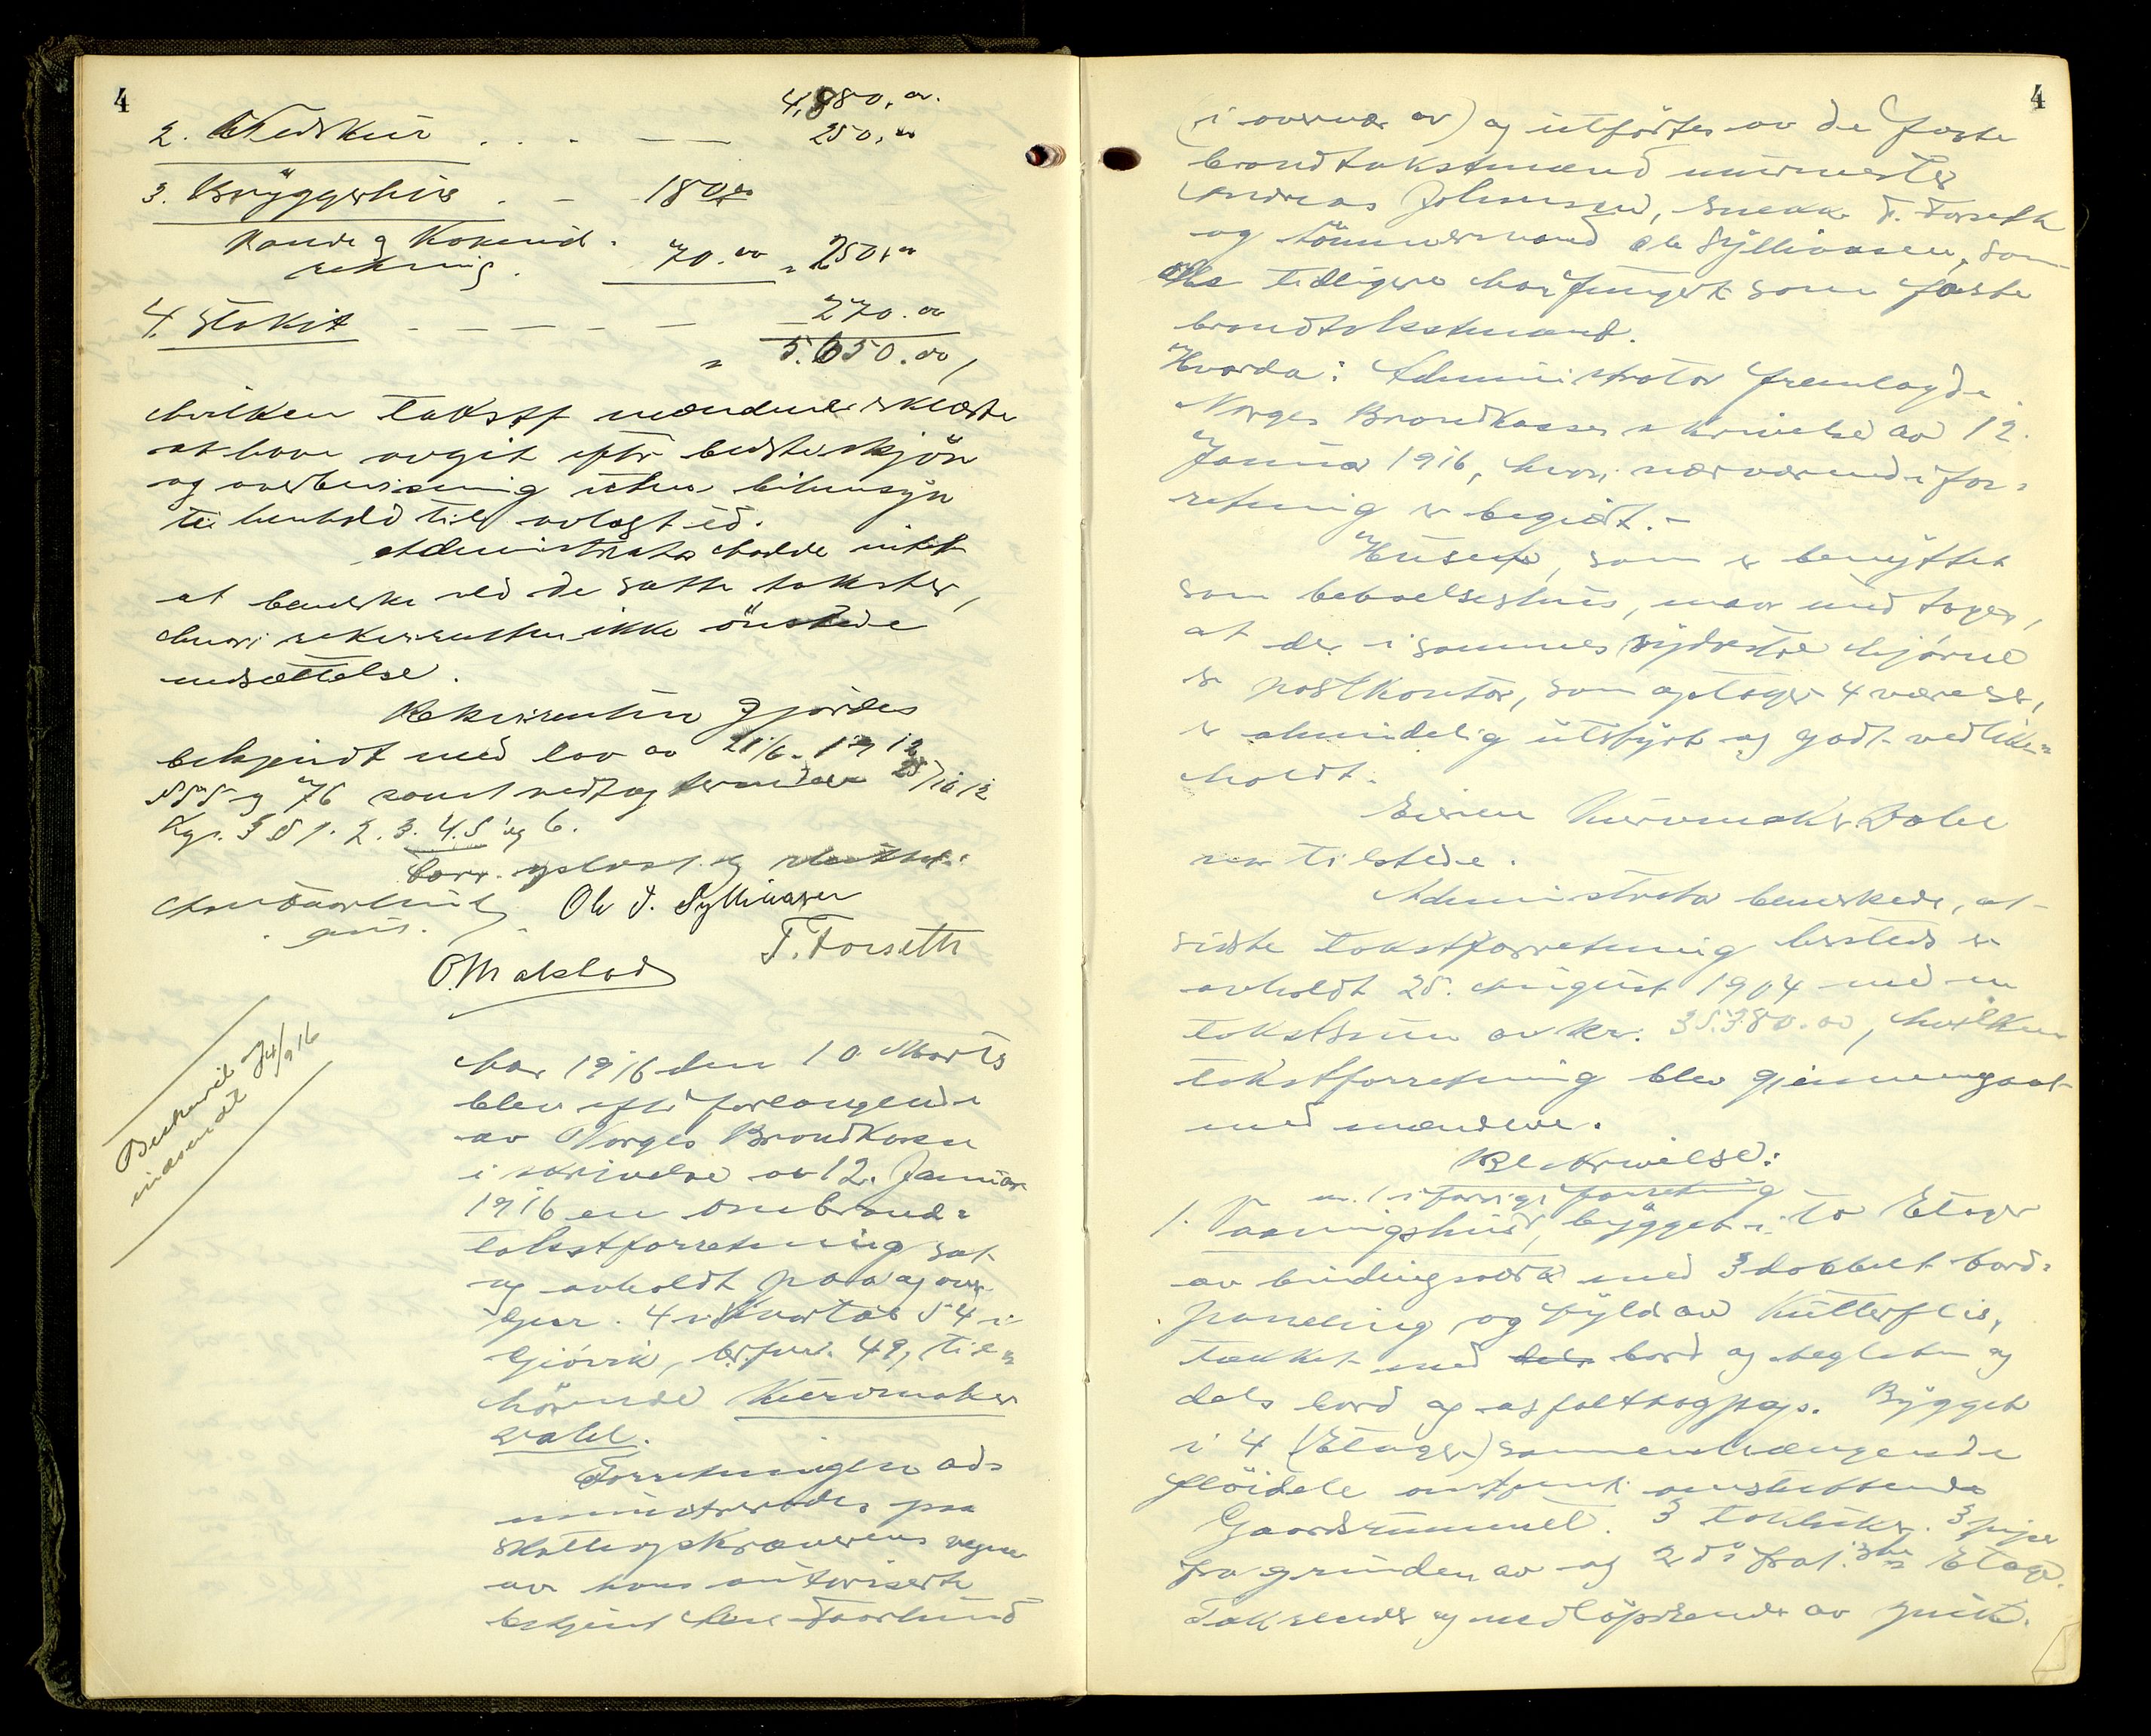 4
4,880.00.
2. Vedskur . . . — 250.00
3. Bryggerhus . - 180.00
Pande og Kokeind-
retning. 70.00 " 250.00
4. Stakit - - - - - 270.00
" 5.650.00,
hvilken takst mændene erklærte
at have avgit efter bedste skjön
og overbevisning uten bihensyn
til henhold til avlagt ed.
Administrator hadde intet
at bemerke ved de satte takster,
hvori rekvirenten ikke önskede
nedsættelse.
Rekvirenten gjordes
bekjendt med lov av 21/6-1912
og 76 samt vedtag 25/10 12
Kgr. 3 § 1. 2. 3. 4. 5 og 6.
Forr. oplæst og sluttet.
Chr. Taarlund Ole J. Sylliaasen
O. Mælslad T. Forseth
Beskrivelse 24/9 16
indsendt
Aar 1916 den 10 Marts
blev efter forlangende
av Norges Brandkasse
i skrivelse av 12. Januar
1916 en ombrand-
takstforretning sat
og avholdt paa og over
Gnr. 4 i Kvartal 54 i
Gjövik, br.pol. 49, til-
hörende Kurvmaker
Dahl.
Forretningen ad-
ministrertes paa
skatteopkræverens vegne
av hans autoriserte
betjent Chr. Taarlund
4
(i overvær av) og utförtes av de faste
brandtakstmænd murmester
Andreas Johnsrud, snekker T. Forseth
og tömmermand Ole Sylliaasen, som
alle tidligere har fungert som faste
brandtakstmænd.
Hvorda: Administrator fremlagde
Norges Brandkasses skrivelse av 12.
Januar 1916, hvori nærværende for-
retning er begjært.-
Huset, som er benyttet
som beboelseshus, maa med tages,
at der i sammes sydöstre hjörne
er postkontor, som optager 4 værelser,
er almindelig utstyrt og godt vedlike-
holdt.
Eieren Kurvmaker Dahl
var tilstede.
Administrator bemerkede, at
sidste takstforretning hersteds er
avholdt 25. August 1904 med en
takstsum av kr. 35.380.00, hvilken
takstforretning blev gjennemgaat
med mændene.
Beskrivelse:
nr. 1 i forrige forretning
1. Vaaningshus, bygget i to Etager
av bindingsverk med 3 dobbelt bord-
paneling og fyld av Kutterflis,
tækket med dels bord og teglsten og
dels bord og asfalttagpap. Bygget
i 4 (Etager) sammenhængende
flöidele omkring omsluttende
Gaardsrummet. 3 takluker. 3 piper
fra grunden av og 2 do fra 1. ste Etage.
Takrender og nedlöpsrender av zink.